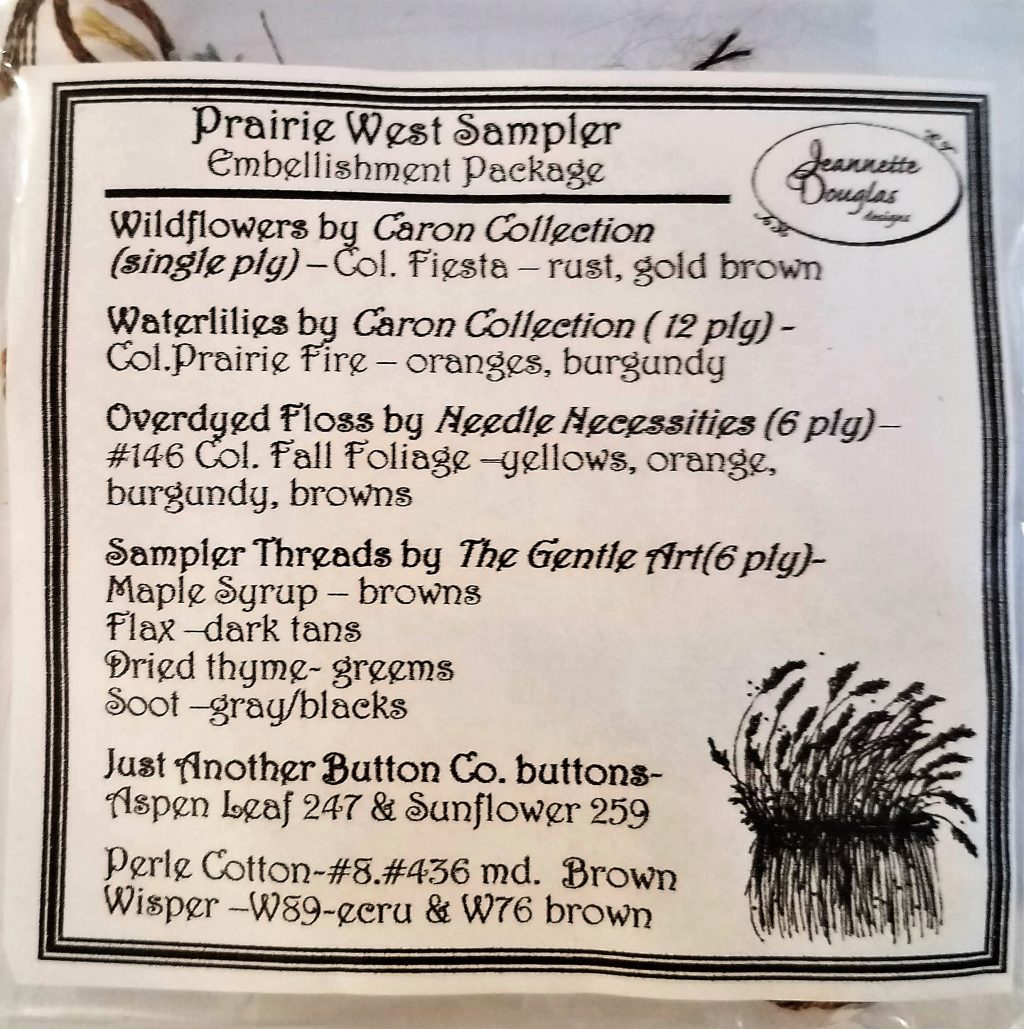 Prairie West Sampler
Embellishment Package
Jeannette
Douglas
designs
Wildflowers by Caron Collection
(single ply) – Col. Fiesta – rust, gold brown
Waterlilies by Caron Collection ( 12 ply) -
Col.Prairie Fire – oranges, burgundy
Overdyed Floss by Needle Necessities (6 ply)–
#146 Col. Fall Foliage –yellows, orange,
burgundy, browns
Sampler Threads by The Gentle Art(6 ply)-
Maple Syrup – browns
Flax –dark tans
Dried thyme- greems
Soot –gray/blacks
Just Another Button Co. buttons-
Aspen Leaf 247 & Sunflower 259
Perle Cotton-#8.#436 md. Brown
Wisper –W89-ecru & W76 brown